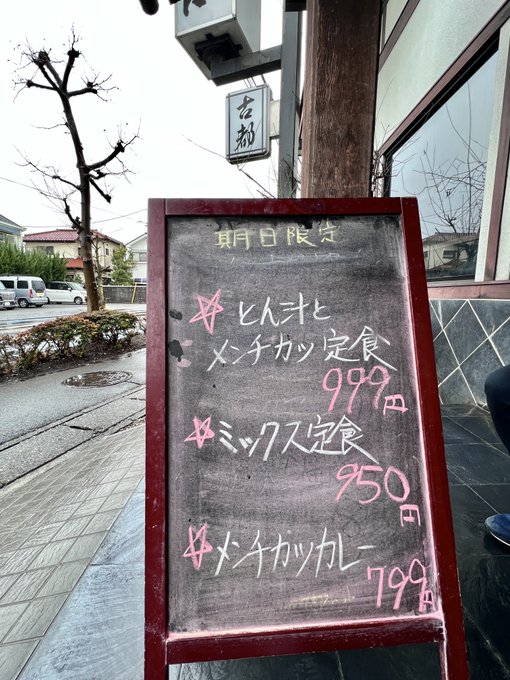 古都
期日限定
とん汁と
メンチカツ定食
999円
ミックス定食
950円
メンチカツカレー
799円